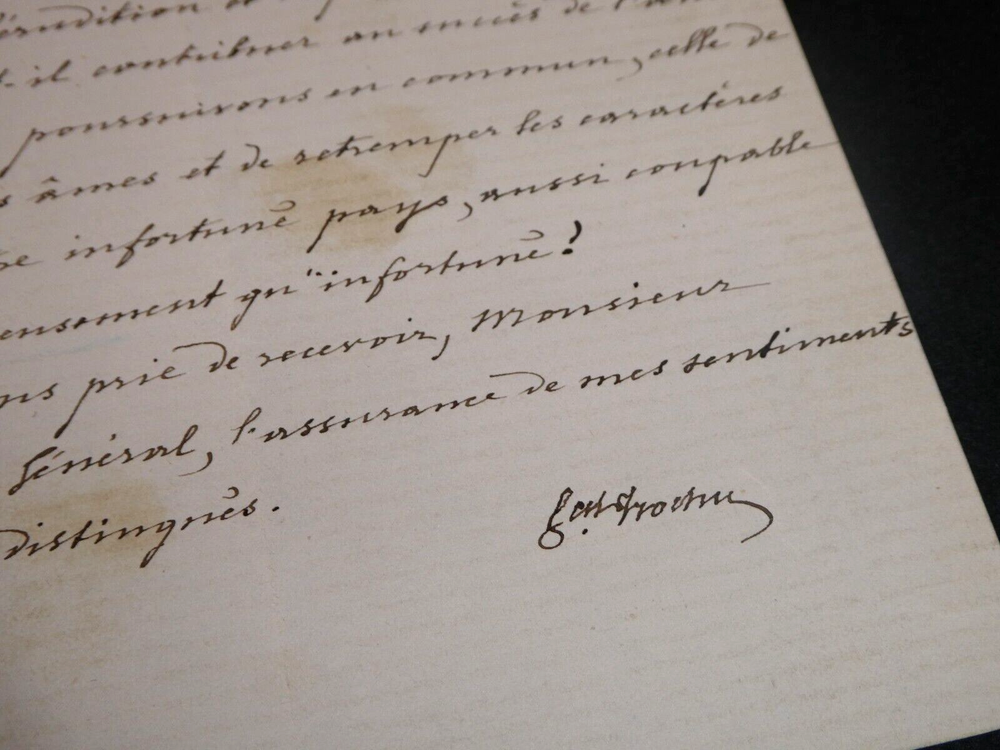 érudition et
-il contribuer au succès de
poursuivons en commun, celle de
s âmes et de retremper les caractères
infortuné pays, aussi coupable
ensement qu'infortuné?
prie de recevoir, Monsieur
Général, l'assurance de mes sentiments
distingués.
Gal Trochu